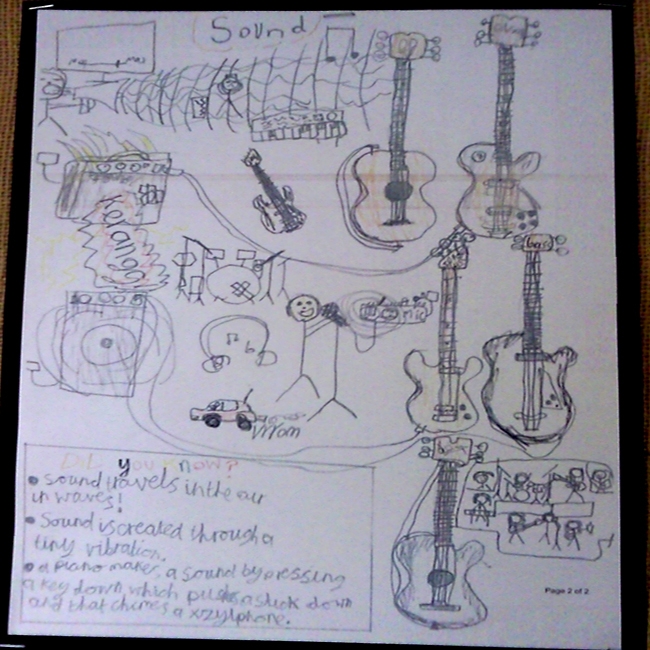 Sound
Kerango
bas
mic
Vrrom
DiD you know?
• sound travels in the air
in waves!
• Sound is created through a
tiny vibration.
• a piano makes, a sound by pressing
a key down which pushes a stick down
and that chimes a xzylphone.
Page 2 of 2